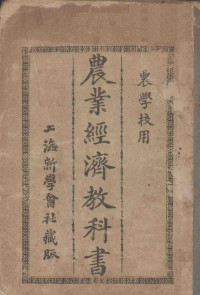 農學校用
農業經濟教科書
上海新學會社藏版